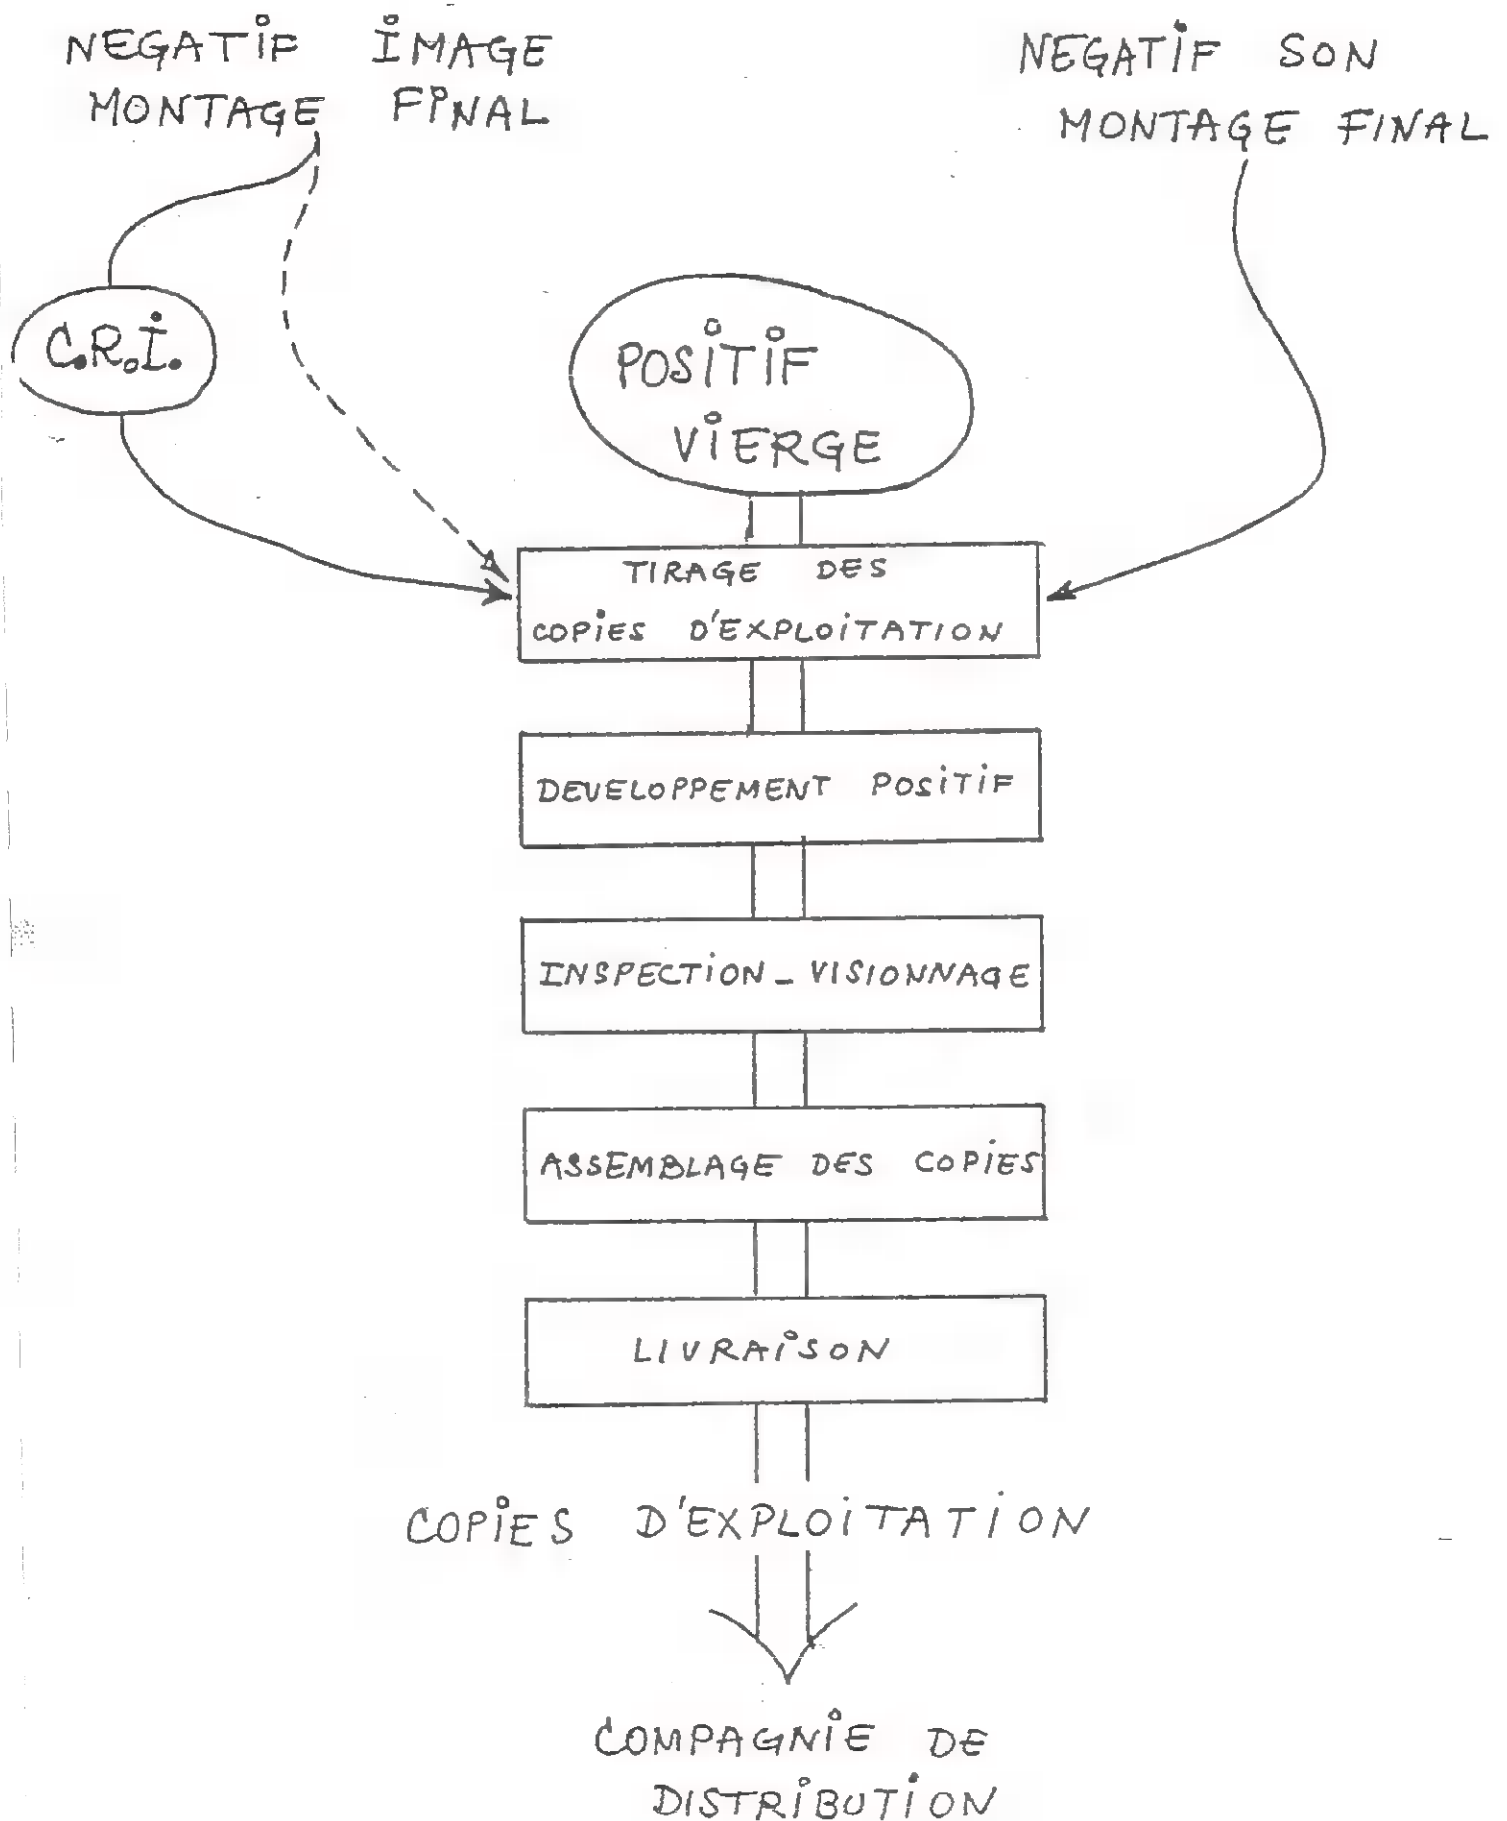 NEGATIF IMAGE
MONTAGE FINAL
NEGATIF SON
MONTAGE FINAL
C.R.I.
POSITIF
VIERGE
TIRAGE DES
COPIES D'EXPLOITATION
DEVELOPPEMENT POSITIF
INSPECTION_VISIONNAGE
ASSEMBLAGE DES COPIES
LIVRAISON
COPIES D'EXPLOITATION
COMPAGNIE DE
DISTRIBUTION